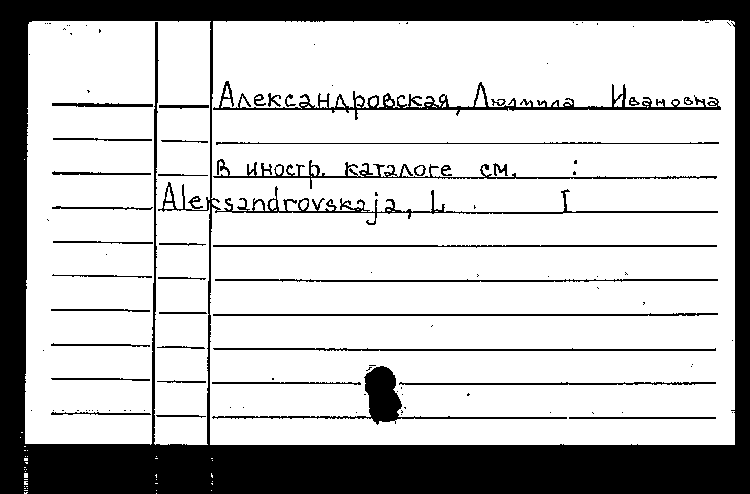 Александровская, Людмила Ивановна
В иностр. каталоге см. :
Aleksandrovskaja, L I